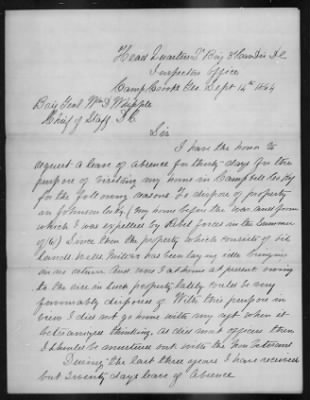 Head Quarters 1st Brig 3d Div D.C
Inspectors Office
Camp Crooks Geo. Sept 14th 1864
Brig Genl Wm D Whipple
Chief of Staff D.C
Sir
I have the honor to
request a leave of absence for thirty days for the
purpose of visiting my home in Campbell Co Ky
for the following reasons To dispose of property
in Johnson Co Ky (my home before the war and from
which I was expelled by Rebel forces in the Summer
of 61) Since then the property which consists of
lands Wells Mills &c has been laying idle bringing
in no return And were I at home at present owing
to the rise in such property lately could be very
favourably disposed of With this purpose in
view I did not go home with my regt when it
veteranized thinking, as did most officers then
I should be mustered out with the non Veterans
During the last three years I have received
but twenty days leave of Absence